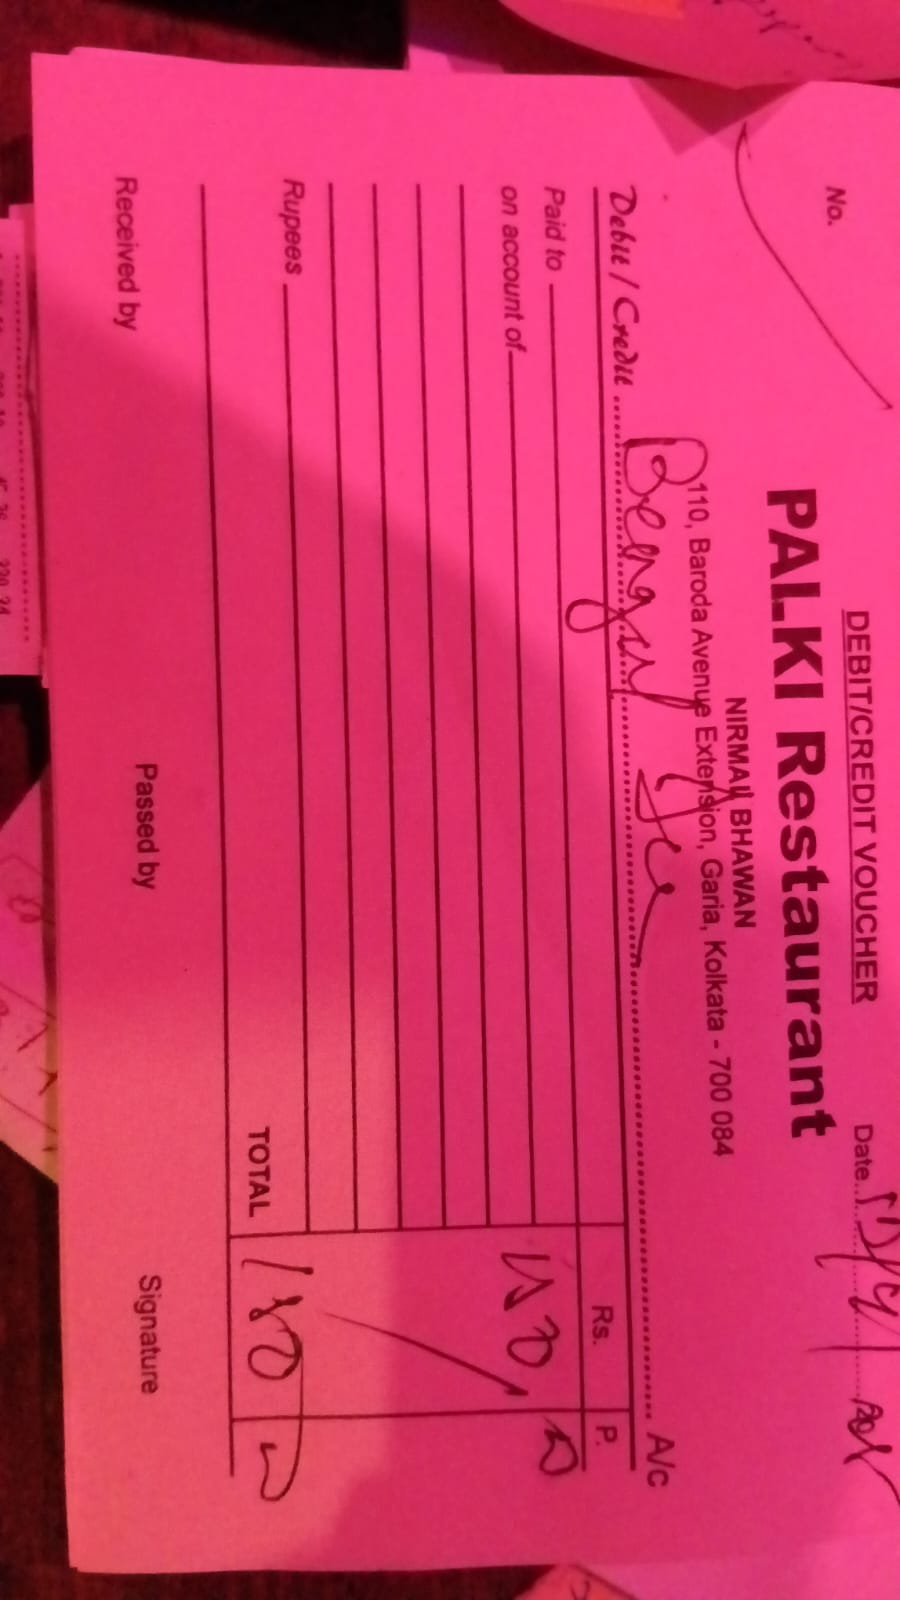 DEBIT/CREDIT VOUCHER
No.
Date
PALKI Restaurant
NIRMALI BHAWAN
110, Baroda Avenue Extension, Garia, Kolkata - 700 084
Debit / Credit Bengal Ice A/c
Rs. P.
Paid to
on account of
Rupees
TOTAL 180
Received by Passed by Signature